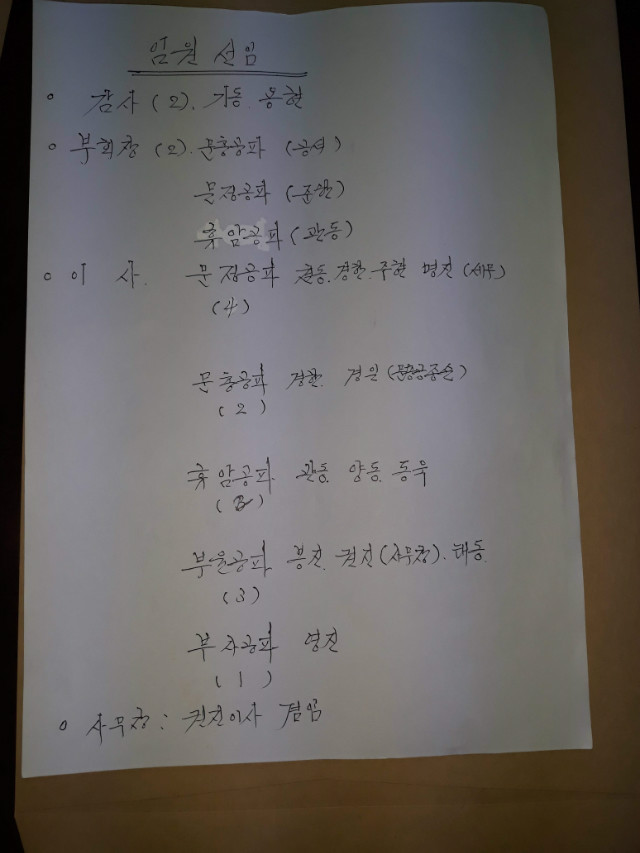 임원 선임
○ 감사 (2). 기동 용현
○ 부회장 (2). 문충공파 (공석)
문정공파 (준한)
휴암공파 (관동)
○ 이 사. 문정공파 동. 경한. 주한 명진 (세무)
(4)
문충공파 경한. 경원
(2)
휴암공파 관동. 양동. 동욱
부윤공파 흥진. 권진 (사무장). 태동.
(3)
부사공파 영진
(1)
○ 사무장 : 권진이사 겸임